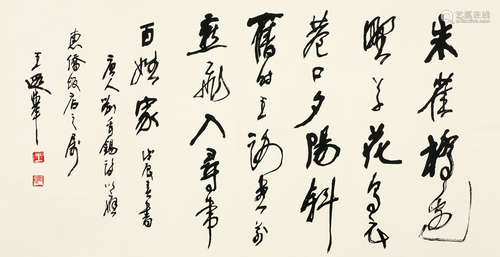 朱雀橋邊
野草花烏衣
巷口夕陽斜
舊時王謝堂前
燕飛入尋常
百姓家 戊辰春書
唐人劉禹錫詩以應
惠僑飯店之屬
王遐舉